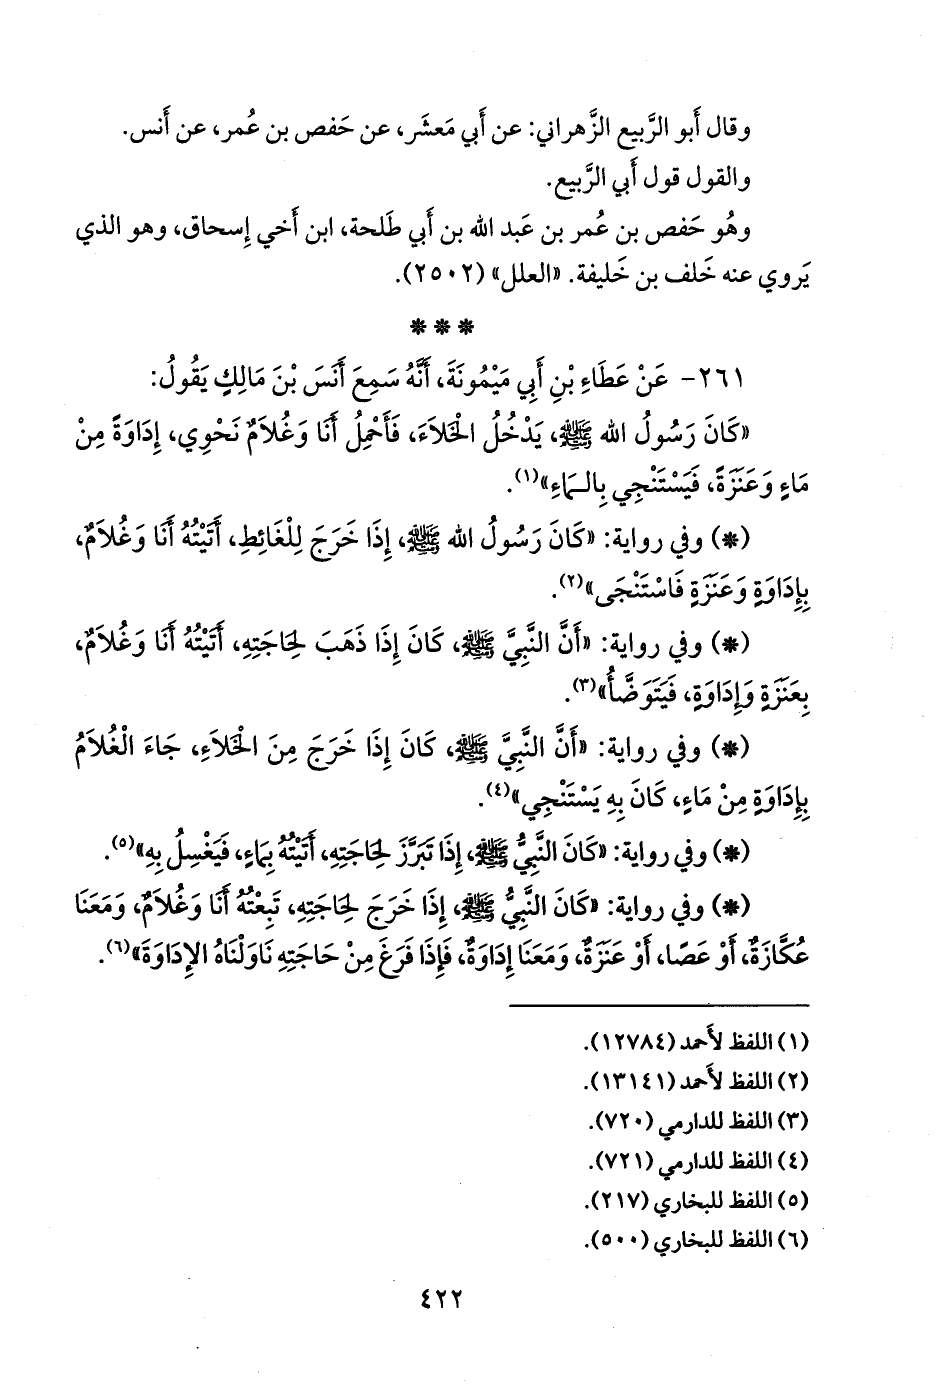 وقال أَبو الرَّبيع الزَّهراني: عن أَبي مَعشَر، عن حَفص بن عُمر، عن أَنس.
والقول قول أَبي الرَّبيع.
وهُو حَفص بن عُمر بن عَبد الله بن أَبي طَلحة، ابن أَخي إِسحاق، وهو الذي
يَروي عنه خَلف بن خَليفة. «العلل» (٢٥٠٢).
***
٢٦١- عَنْ عَطَاءِ بْنِ أَبِي مَيْمُونَةَ، أَنَّهُ سَمِعَ أَنَسَ بْنَ مَالِكٍ يَقُولُ:
«كَانَ رَسُولُ الله ﷺ، يَدْخُلُ الْخَلَاءَ، فَأَحْمِلُ أَنَا وَغُلَامٌ نَحْوِي، إِدَاوَةً مِنْ
مَاءٍ وَعَنَزَةً، فَيَسْتَنْجِي بِالـمَاءِ»(١).
(*) وفي رواية: «كَانَ رَسُولُ الله ﷺ، إِذَا خَرَجَ لِلْغَائِطِ، أَتَيْتُهُ أَنَا وَغُلَامٌ،
بِإِدَاوَةٍ وَعَنَزَةٍ فَاسْتَنْجَى»(٢).
(*) وفي رواية: «أَنَّ النَّبِيَّ ﷺ، كَانَ إِذَا ذَهَبَ لِحَاجَتِهِ، أَتَيْتُهُ أَنَا وَغُلَامٌ،
بِعَنَزَةٍ وَإِدَاوَةٍ، فَيَتَوَضَّأُ»(٣).
(*) وفي رواية: «أَنَّ النَّبِيَّ ﷺ، كَانَ إِذَا خَرَجَ مِنَ الْخَلَاءِ، جَاءَ الْغُلَامُ
بِإِدَاوَةٍ مِنْ مَاءٍ، كَانَ بِهِ يَسْتَنْجِي»(٤).
(*) وفي رواية: «كَانَ النَّبِيُّ ﷺ، إِذَا تَبَرَّزَ لِحَاجَتِهِ، أَتَيْتُهُ بِمَاءٍ، فَيَغْسِلُ بِهِ»(٥).
(*) وفي رواية: «كَانَ النَّبِيُّ ﷺ، إِذَا خَرَجَ لِحَاجَتِهِ، تَبِعْتُهُ أَنَا وَغُلَامٌ، وَمَعَنَا
عُكَّازَةٌ، أَوْ عَصًا، أَوْ عَنَزَةٌ، وَمَعَنَا إِدَاوَةٌ، فَإِذَا فَرَغَ مِنْ حَاجَتِهِ نَاوَلْنَاهُ الإِدَاوَةَ»(٦).
(١) اللفظ لأَحمد (١٢٧٨٤).
(٢) اللفظ لأَحمد (١٣١٤١).
(٣) اللفظ للدارمي (٧٢٠).
(٤) اللفظ للدارمي (٧٢١).
(٥) اللفظ للبخاري (٢١٧).
(٦) اللفظ للبخاري (٥٠٠).
٤٢٢